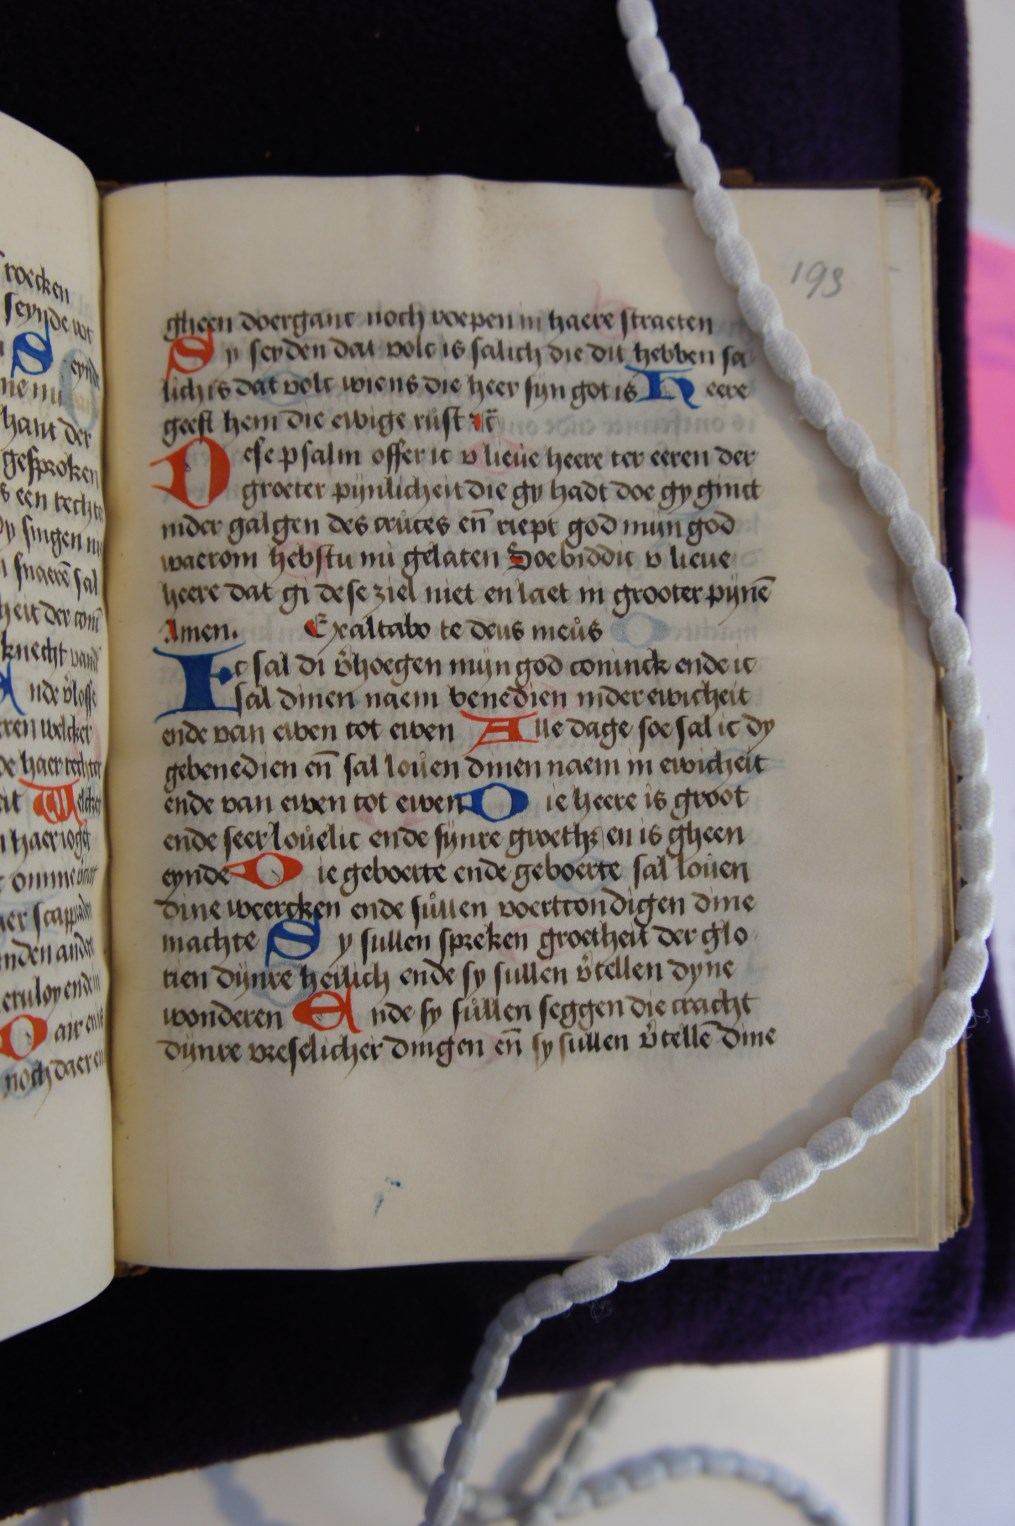 roecken
seynde vvt
S eynde
me nu
hant der
gesproken
s een rechte
Dy singen
snaerē sal
heit der
knecht vand
A nde v̄losse
ren welcker
de haer rechter
eit Welcker
n haer ioget
nden ander
D air en is
noch daer en
193
gheen doerganc noch roepen in haere straeten
S y seyden dat volc is salich die dit hebben sa
lich is dat volc wiens die heer sijn got is H eere
geeft hem die ewige rust ꝛc̄
D ese psalm offer ic v lieue heere ter eeren der
groeter pijnlicheit die gy hadt doe gy ginct
inder galgen des cruces en̄ riept god mijn god
waerom hebstu mi gelaten Soe biddic v lieue
heere dat gi dese ziel niet en laet in grooter pijnē
Amen. Exaltabo te deus meus
I c sal di v̄hoegen mijn god coninck ende ic
sal dinen naem benedien inder ewicheit
ende van ewen tot ewen A lle dage soe sal ic dy
gebenedien en̄ sal louen dinen naem in ewicheit
ende van ewen tot ewen D ie heere is groot
ende seer louelic ende sijnre groeth; en is gheen
eynde D ie geboerte ende geboerte sal louen
dine weercken ende sullen voertcondigen dine
machte S y sullen spreken groetheit der glo
rien dijnre heilich ende sy sullen v̄tellen dyne
wonderen E nde sy sullen seggen die cracht
dijnre vreselicher dingen en̄ sy sullen v̄tellē dine